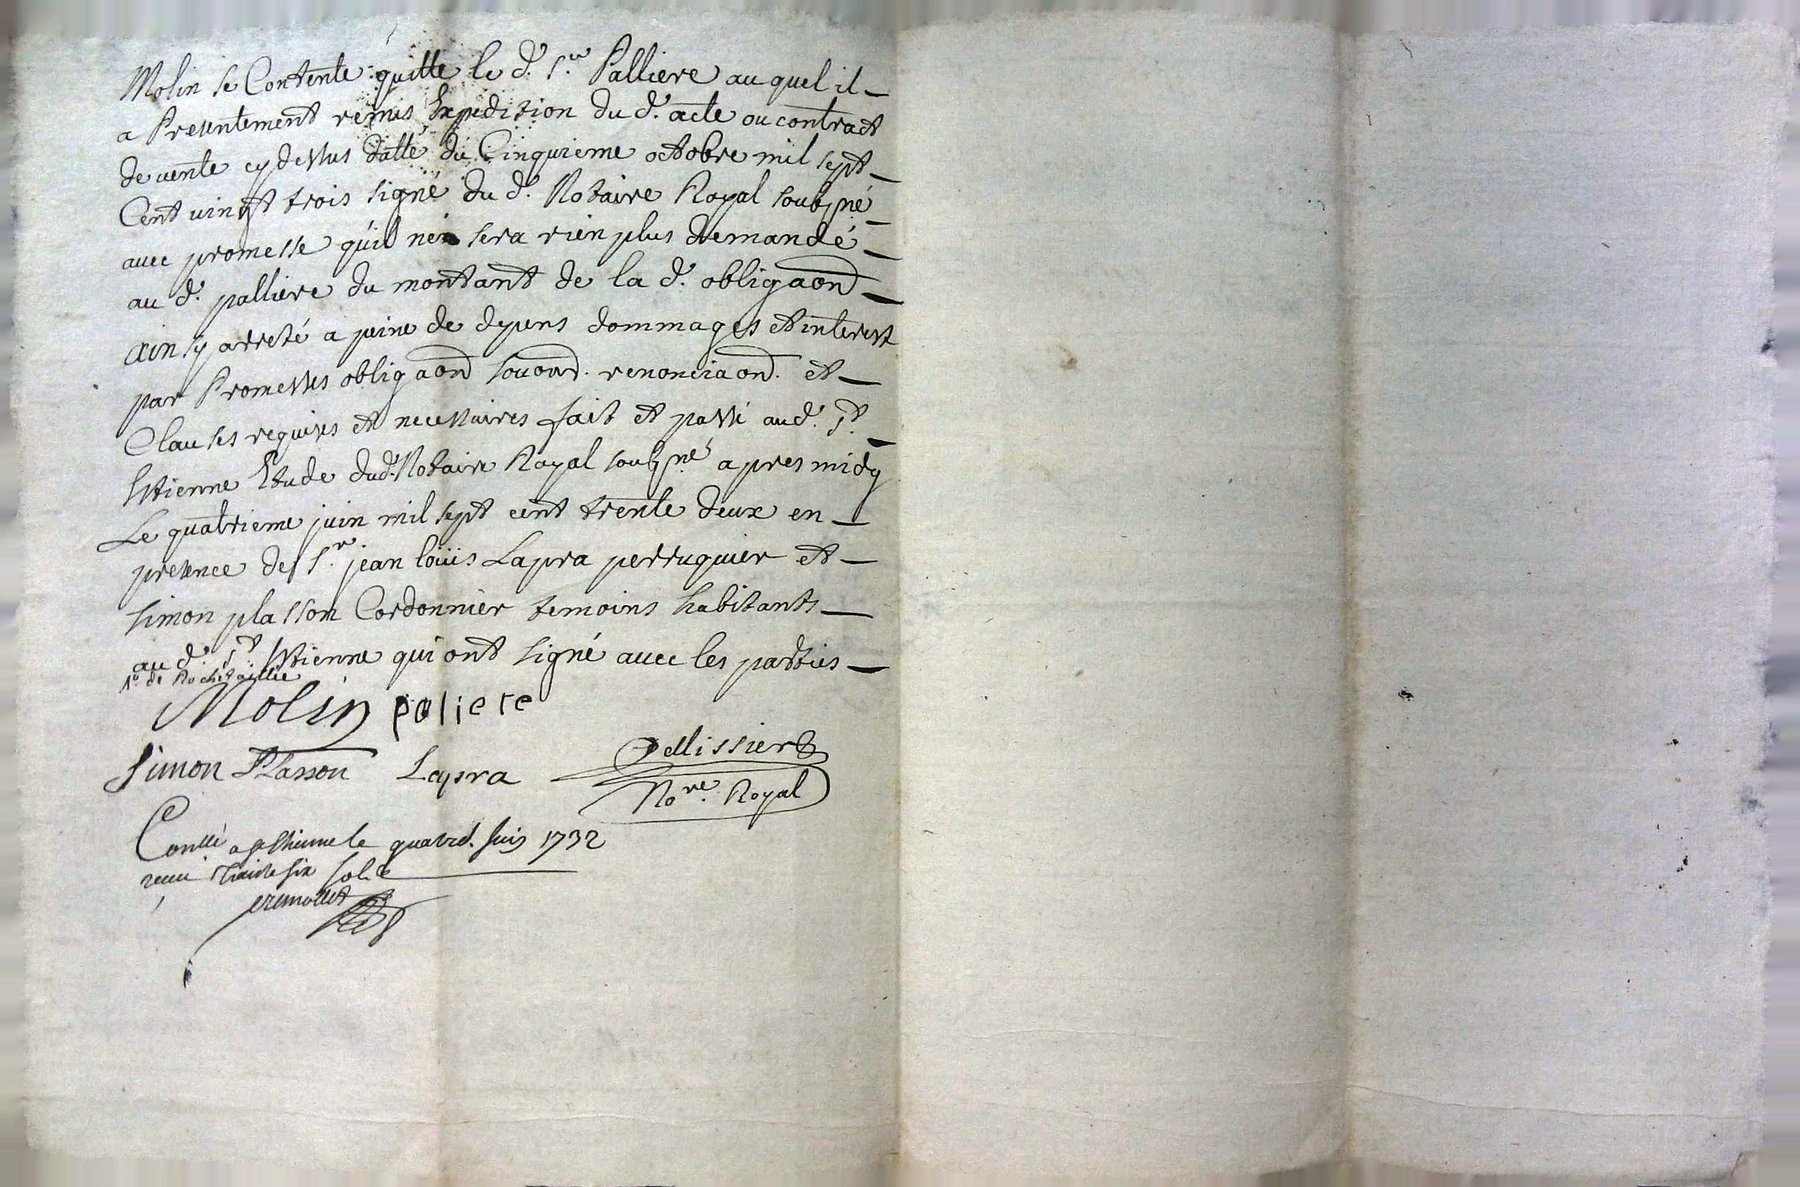 Molin se Contente quitte le d. Sr. Palliere au quel il
a Presentement remis Expedition du d. acte ou contract
de vente cy dessus datté du Cinquieme octobre mil sept
Cent vingt trois signé du d. Notaire Royal soubsné
avec promesse quil nén sera rien plus demandé
au d. palliere du montant de la d. obligaond
ainsy arreté a peine de depens dommages et interest
par Promesses obligaond renonciaond. et
Clauses requises et necessaires fait et passé aud. St.
Estienne Etude dud. Notaire Royal soubsné apres midy
Le quatrieme juin mil sept cent trente deux en
presence de Sr. jean loüis Lapra perruquier et
simon plasson Cordonnier temoins habitants
au d. St. Estienne qui ont signé avec les parties
de Rochetaillée
Molin paliere
Simon Plasson Lapra Pellissier
Nore. Royal
Conllé a st Etienne le quatre. Juin 1732
receu Trante six sols